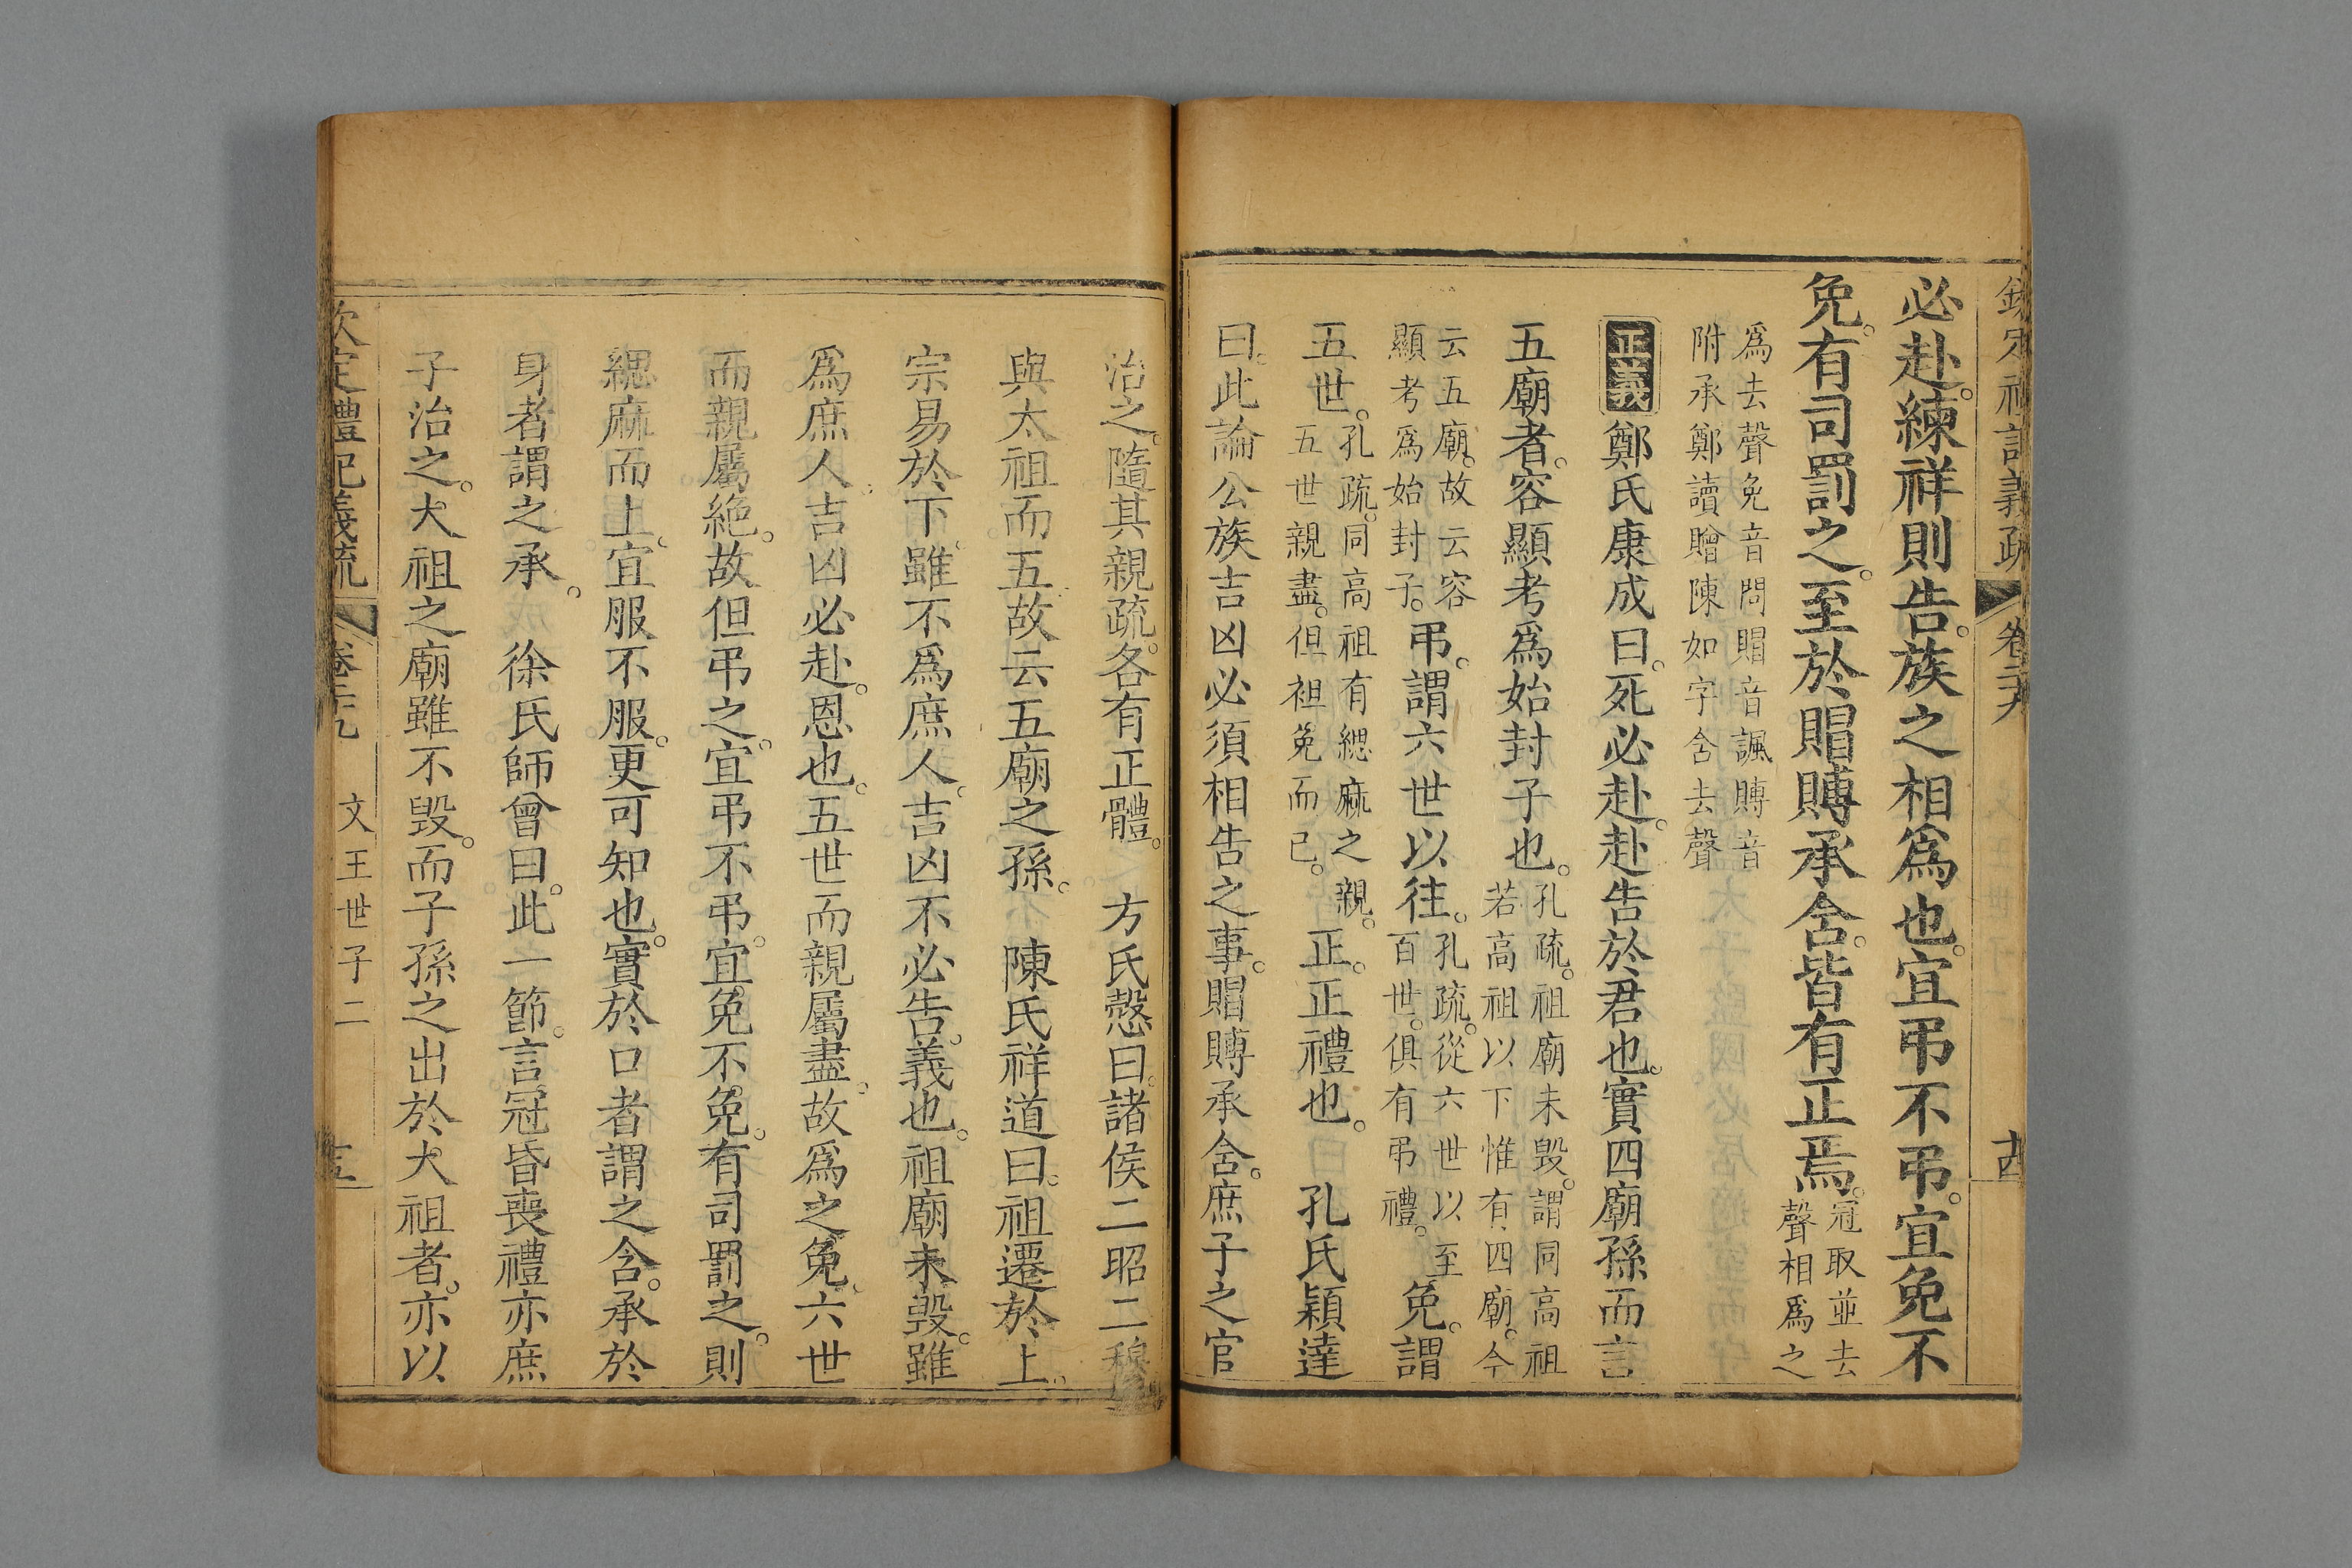 欽定禮記義疏 卷二十九 十四
必赴。練祥則告。族之相爲也。宜弔不弔。宜免不
免。有司罰之。至於賵賻承含。皆有正焉。冠取並去
聲相爲之
爲去聲免音問賵音諷賻音
附承鄭讀贈陳如字含去聲
正義 鄭氏康成曰。死必赴。赴告於君也。實四廟孫而言
五廟者。容顯考爲始封子也。孔疏。祖廟未毀。謂同高祖
若高祖以下惟有四廟。今
云五廟。故云容
顯考爲始封子。弔。謂六世以往。孔疏。從六世以至
百世。俱有弔禮。免。謂
五世。孔疏。同高祖有緦麻之親。
五世親盡。但袒免而已。正。正禮也。 孔氏穎達
曰。此論公族吉凶必須相告之事。賵賻承含。庶子之官
治之。隨其親疏。各有正體。 方氏慤曰。諸侯二昭二穆
與太祖而五故云五廟之孫。 陳氏祥道曰。祖遷於上。
宗易於下。雖不爲庶人。吉凶不必告。義也。祖廟未毀。雖
爲庶人。吉凶必赴。恩也。五世而親屬盡。故爲之免。六世
而親屬絶。故但弔之。宜弔不弔。宜免不免。有司罰之。則
緦麻而上。宜服不服。更可知也。實於口者謂之含。承於
身者謂之承。 徐氏師曾曰。此一節。言冠昏喪禮亦庶
子治之。大祖之廟雖不毀。而子孫之出於大祖者。亦以
欽定禮記義疏 卷二十九 文王世子二 十五